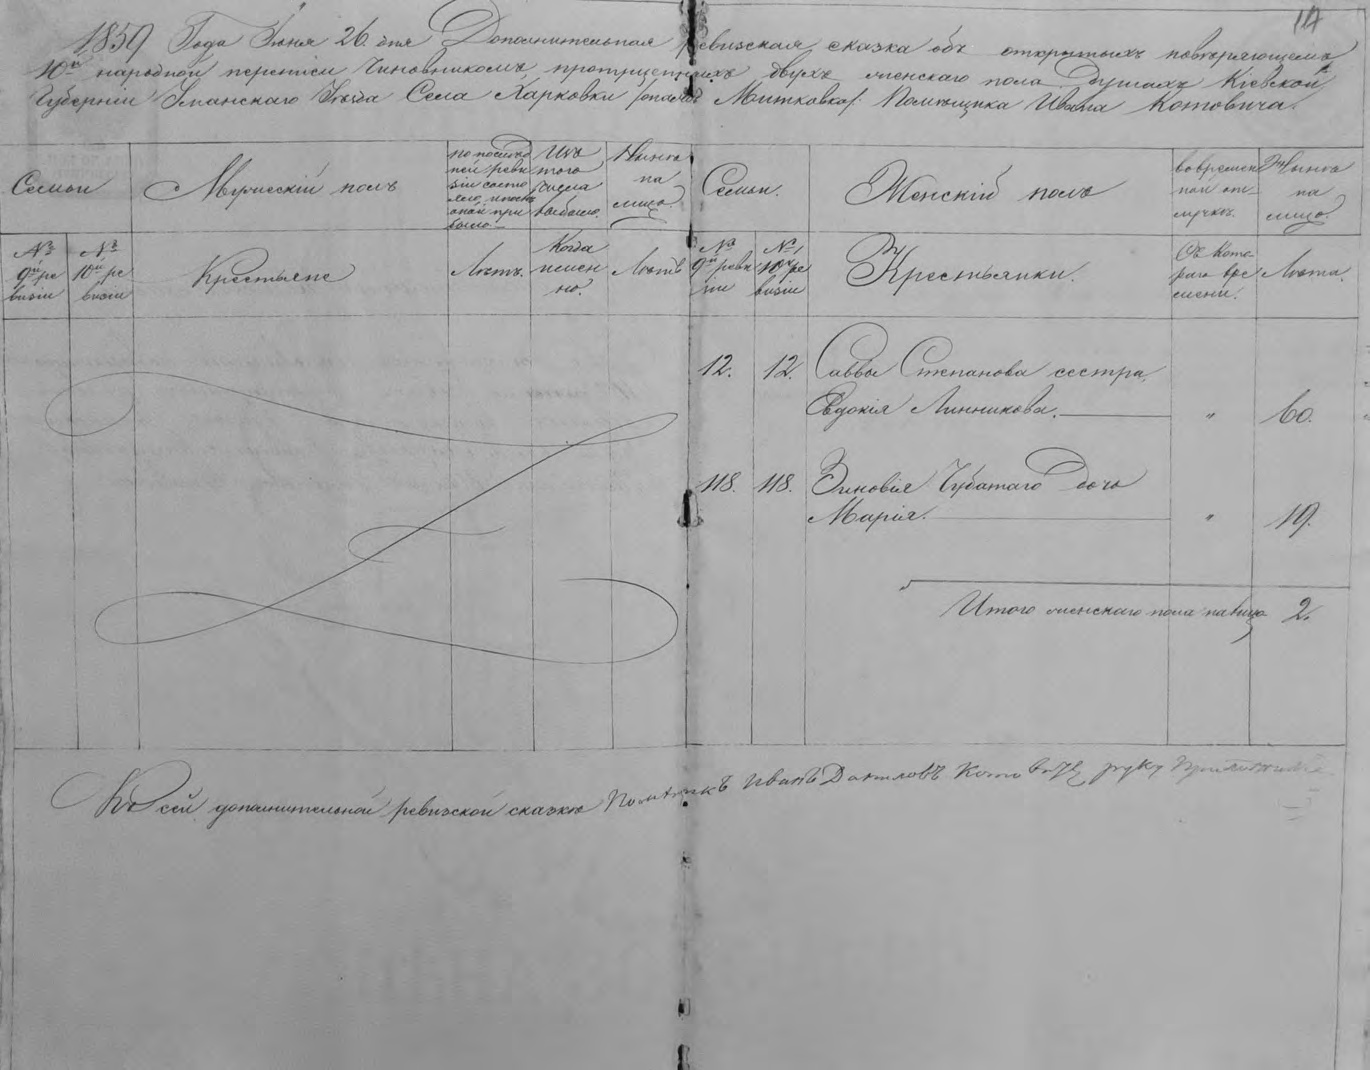 14
1859 Года Іюня 26 дня Дополнительная ревизская сказка объ открытыхъ повѣряющемъ
10й народной переписи Чиновникомъ, пропущенныхъ двухъ женскаго пола душахъ Кіевской
Губерніи Уманскаго Уѣзда Села Харковки Митковка Помѣщика Ивана Котовича.
Семьи
Мужескій полъ
по последней ревизіи состояло, и послѣ оной прибыло
Изъ того числа выбыло.
Нынѣ на лицо.
Семьи.
Женскій полъ
во временной отлучкѣ.
Нынѣ на лицо.
№ 9й ревизіи
№ 10й ревизіи
Крестьяне
Лѣтъ.
Когда именно.
Лѣтъ
№ 9й ревизіи
№ 10й ревизіи
Крестьянки.
Съ котораго времени.
Лѣта.
12. 12. Саввы Степанова сестра
Евдокія Линникова. „ 60.
118. 118. Зиновія Чубатаго дочь
Марія. „ 19.
Итого женскаго пола на лицо 2.
Къ сей дополнительной ревизской сказкѣ Помѣщикъ Иванъ Даниловъ Котовичъ руку приложилъ